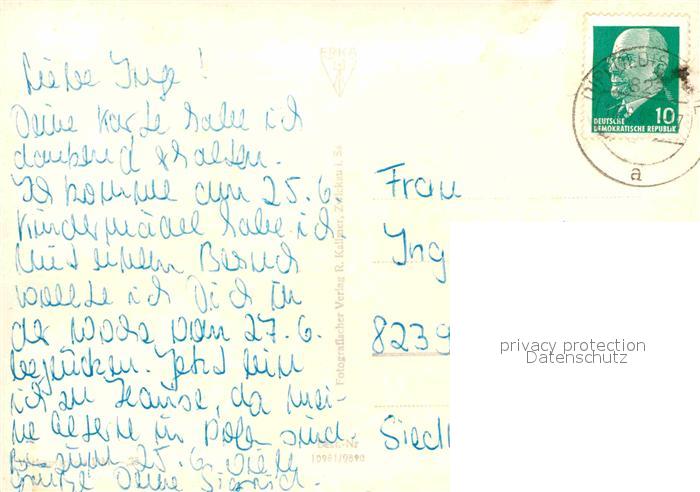 Liebe Inge!
Deine Karte habe ich
dankend erhalten.
Ich komme am 25.6.
Kindermädel habe ich
Mit einem Besuch
wollte ich Dich in
der Woche vom 27.6.
beglücken. Jetzt bin
ich zu Hause, da mei-
ne Eltern in Polen sind.
Bis zum 25.6. Viele
Grüße Deine Sigrid.
ERKA
Fotografischer Verlag R. Kallmer, Zwickau i. Sa
Nr
10981/9890
10
DEUTSCHE
DEMOKRATISCHE REPUBLIK
a
Frau
Ing
8239
Siedl
privacy protection
Datenschutz